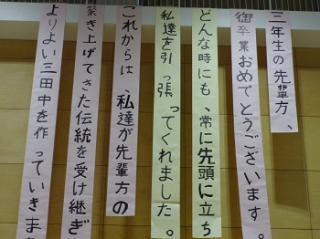 三年生の先輩方、
御卒業おめでとうございます。
どんな時にも、常に先頭に立ち
私達を引っ張ってくれました。
これからは、私達が先輩方の
築き上げてきた伝統を受け継ぎ
よりよい三田中を作っていきま